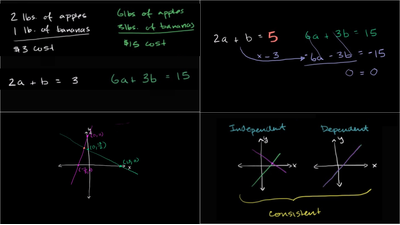 2 lbs. of apples
1 lb. of bananas
$3 cost
6 lbs of apples
3 lbs. of bananas
$15 cost
2a + b = 3
6a + 3b = 15
2a + b = 5
6a + 3b = 15
x -3
-6a - 3b = -15
0 = 0
y
x
Independent
Dependent
y
x
y
x
consistent